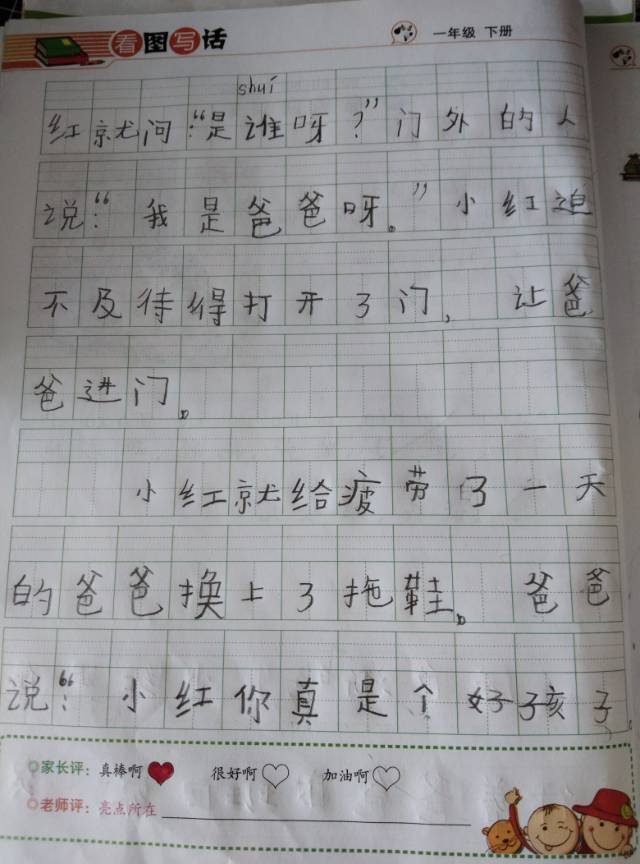 看图写话
一年级 下册
shuí
红就问:“是谁呀?”门外的人
说:“我是爸爸呀。”小红迫
不及待得打开了门,让爸
爸进门。
小红就给疲劳了一天
的爸爸换上了拖鞋。爸爸
说:“小红你真是个好孩子
家长评: 真棒啊 很好啊 加油啊
老师评: 亮点所在